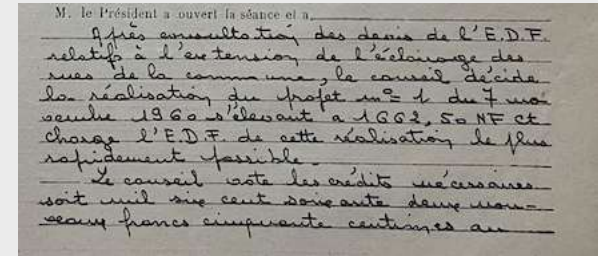 M. le Président a ouvert la séance et a
Après consultation des devis de l'E.D.F.
relatifs à l'extension de l'éclairage des
rues de la commune, le conseil décide
la réalisation du projet n° 1 du 7 no
vembre 1960 s'élevant a 1662,50 NF et
charge l'E.D.F. de cette réalisation le plus
rapidement possible.
Le conseil vote les crédits nécessaires
soit mil six cent soixante deux nou-
veaux francs cinquante centimes au